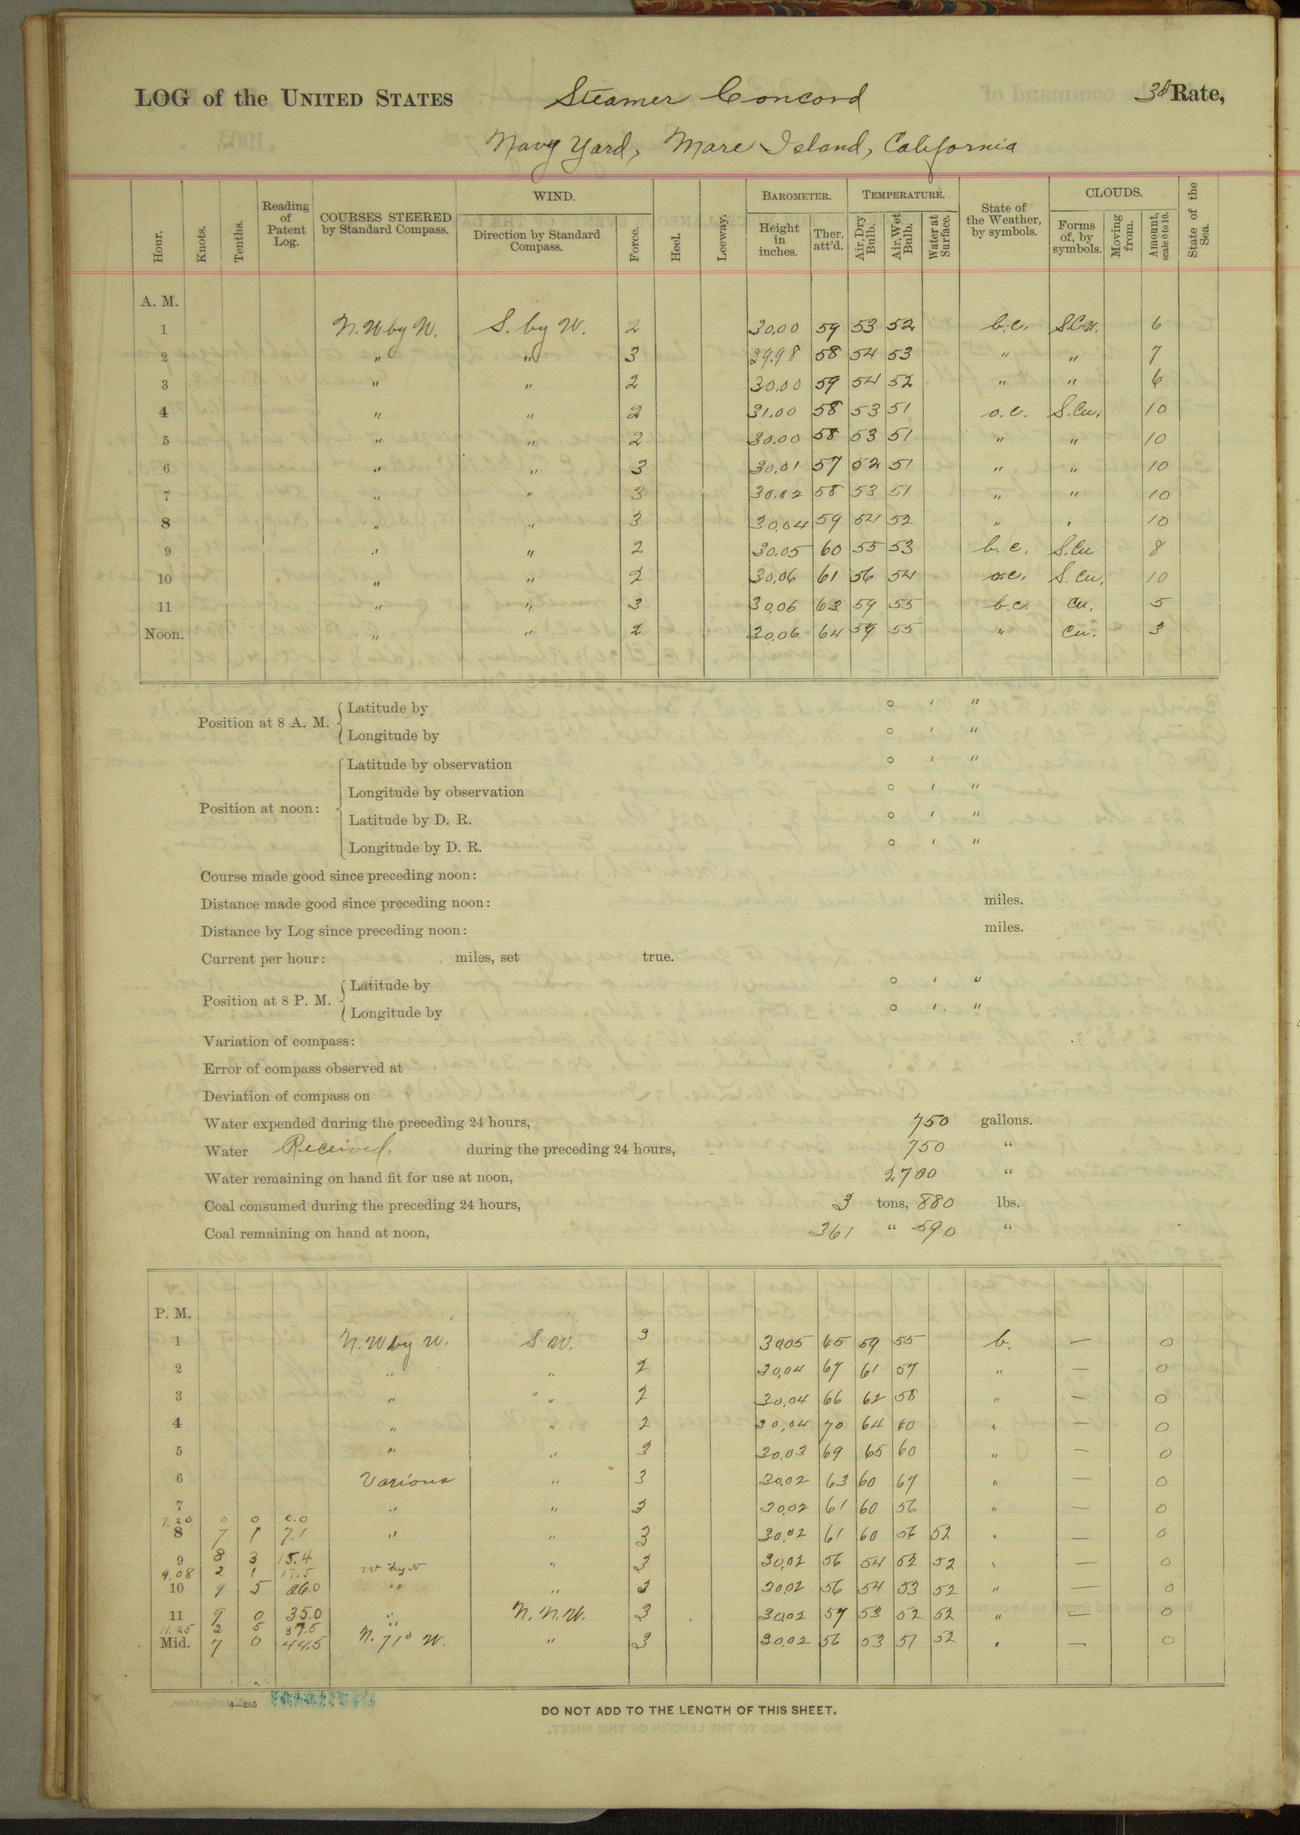 LOG of the UNITED STATES Steamer Concord 3d Rate,
Navy Yard, Mare Island, California
Hour. Knots. Tenths. Reading of Patent Log. COURSES STEERED by Standard Compass. WIND. Direction by Standard Compass. Force. Heel. Leeway. BAROMETER. Height in inches. Ther. att'd. TEMPERATURE. Air, Dry Bulb. Air, Wet Bulb. Water at Surface. State of the Weather, by symbols. CLOUDS. Forms of, by symbols. Moving from. Amount, scale 0 to 10. State of the Sea.
A. M.
1 N.W by W. S. by W. 2 30.00 59 53 52 b.c. S.Cu. 6
2 " " 3 29.98 58 54 53 " " 7
3 " " 2 30.00 59 54 52 " " 6
4 " " 2 31.00 58 53 51 o.c. S.Cu. 10
5 " " 2 30.00 58 53 51 " " 10
6 " " 3 30.01 57 52 51 " " 10
7 " " 3 30.02 58 53 51 " " 10
8 " " 3 30.04 59 54 52 " " 10
9 " " 2 30.05 60 55 53 b.c. S.Cu 8
10 " " 2 30.06 61 56 54 o.c. S.Cu. 10
11 " " 3 30.06 63 59 55 b.c. Cu. 5
Noon. " " 2 30.06 64 59 55 " Cu. 3
Position at 8 A. M. Latitude by ° ' "
Longitude by ° ' "
Position at noon: Latitude by observation ° ' "
Longitude by observation ° ' "
Latitude by D. R. ° ' "
Longitude by D. R. ° ' "
Course made good since preceding noon:
Distance made good since preceding noon: miles.
Distance by Log since preceding noon: miles.
Current per hour: miles, set true.
Position at 8 P. M. Latitude by ° ' "
Longitude by ° ' "
Variation of compass:
Error of compass observed at
Deviation of compass on
Water expended during the preceding 24 hours, 750 gallons.
Water Received. during the preceding 24 hours, 750 "
Water remaining on hand fit for use at noon, 2700 "
Coal consumed during the preceding 24 hours, 3 tons, 880 lbs.
Coal remaining on hand at noon, 361 " 590 "
P. M.
1 N.W by W. S.W. 3 30.05 65 59 55 b. — 0
2 " " 2 30.04 67 61 57 " — 0
3 " " 2 30.04 66 62 58 " — 0
4 " " 2 30.04 70 64 60 " — 0
5 " " 3 30.03 69 65 60 " — 0
6 Various " 3 30.02 63 60 67 " — 0
7 " " 3 30.02 61 60 56 " — 0
7.20 0 0 0.0
8 7 1 7.1 " " 3 30.02 61 60 56 52 " — 0
9 8 3 15.4 " 3 30.02 56 54 52 52 " — 0
9.08 2 1 17.5 W by N
10 9 5 26.0 " " 3 30.02 56 54 53 52 " — 0
11 9 0 35.0 " N.N.W. 3 30.02 57 53 52 52 " — 0
11.25 2 5 37.5 "
Mid. 7 0 44.5 N. 71° W. " 3 30.02 56 53 51 52 " — 0
4—265
DO NOT ADD TO THE LENGTH OF THIS SHEET.